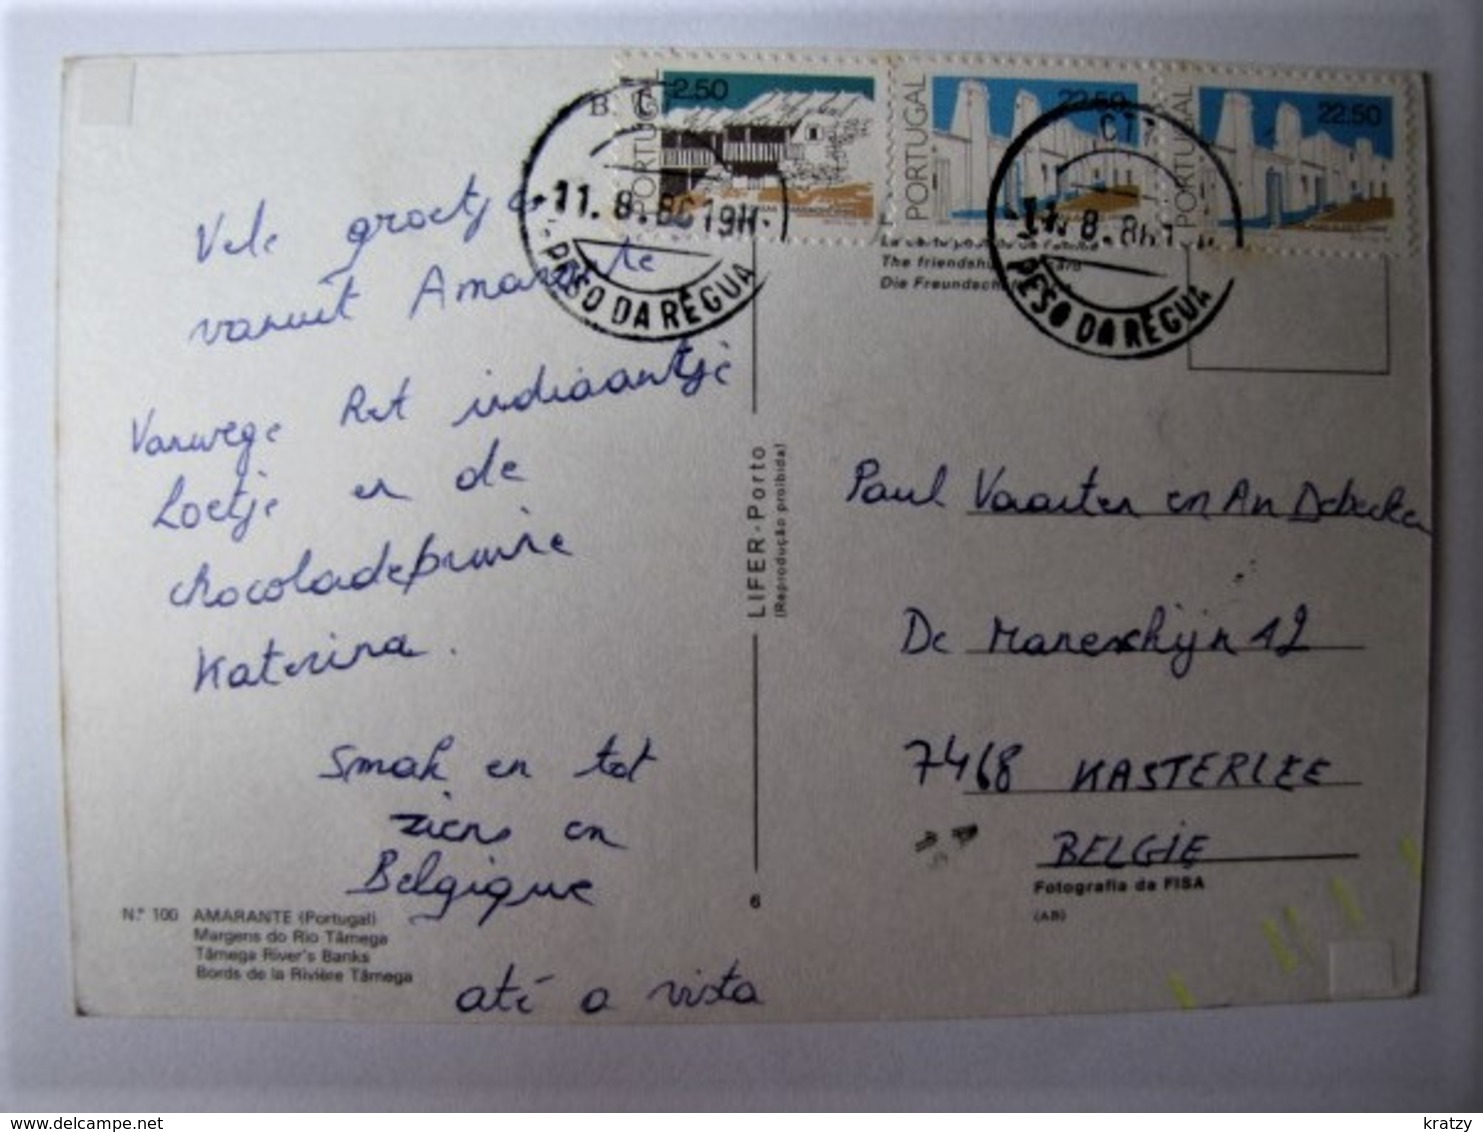 Vele groetjes
vanuit Amarante
Vanwege Rut indiaantje
Loetje en de
chocoladebruine
Katerina.
Smak en tot
ziens en
Belgique
até a vista
N.º 100 AMARANTE (Portugal)
Margens do Rio Tâmega
Tâmega River's Banks
Bords de la Rivière Tâmega
LIFER - Porto
(Reprodução proibida)
6
2.50
PORTUGAL
22.50
PORTUGAL
22.50
PORTUGAL
11.8.86 19H
PESO DA RÉGUA
CTT
PESO DA RÉGUA
The friendship
Die Freundschaft
Paul Vaarten en An Debecker
De Maneschijn 12
7468 KASTERLEE
BELGIE
Fotografia da FISA
(AB)
delcampe.net
kratzy